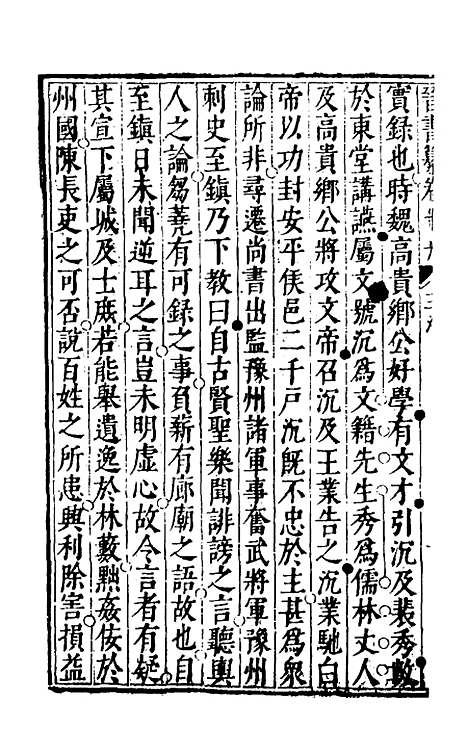 實録也時魏高貴鄉公好學有文才引沉及裴秀數
於東堂講讌屬文號沉爲文籍先生秀爲儒林丈人
及高貴鄉公將攻文帝召沉及王業告之沉業馳白
帝以功封安平侯邑二千戸沉旣不忠於主甚爲衆
論所非尋遷尚書出監豫州諸軍事奮武將軍豫州
刺史至鎭乃下教曰自古賢聖樂聞誹謗之言聽輿
人之論芻蕘有可録之事負薪有廊廟之語故也自
至鎭日未聞逆耳之言豈未明虛心故令言者有疑
其宣下屬城及士庶若能舉遺逸於林藪黜姦佞於
州國陳長吏之可否說百姓之所患興利除害損益